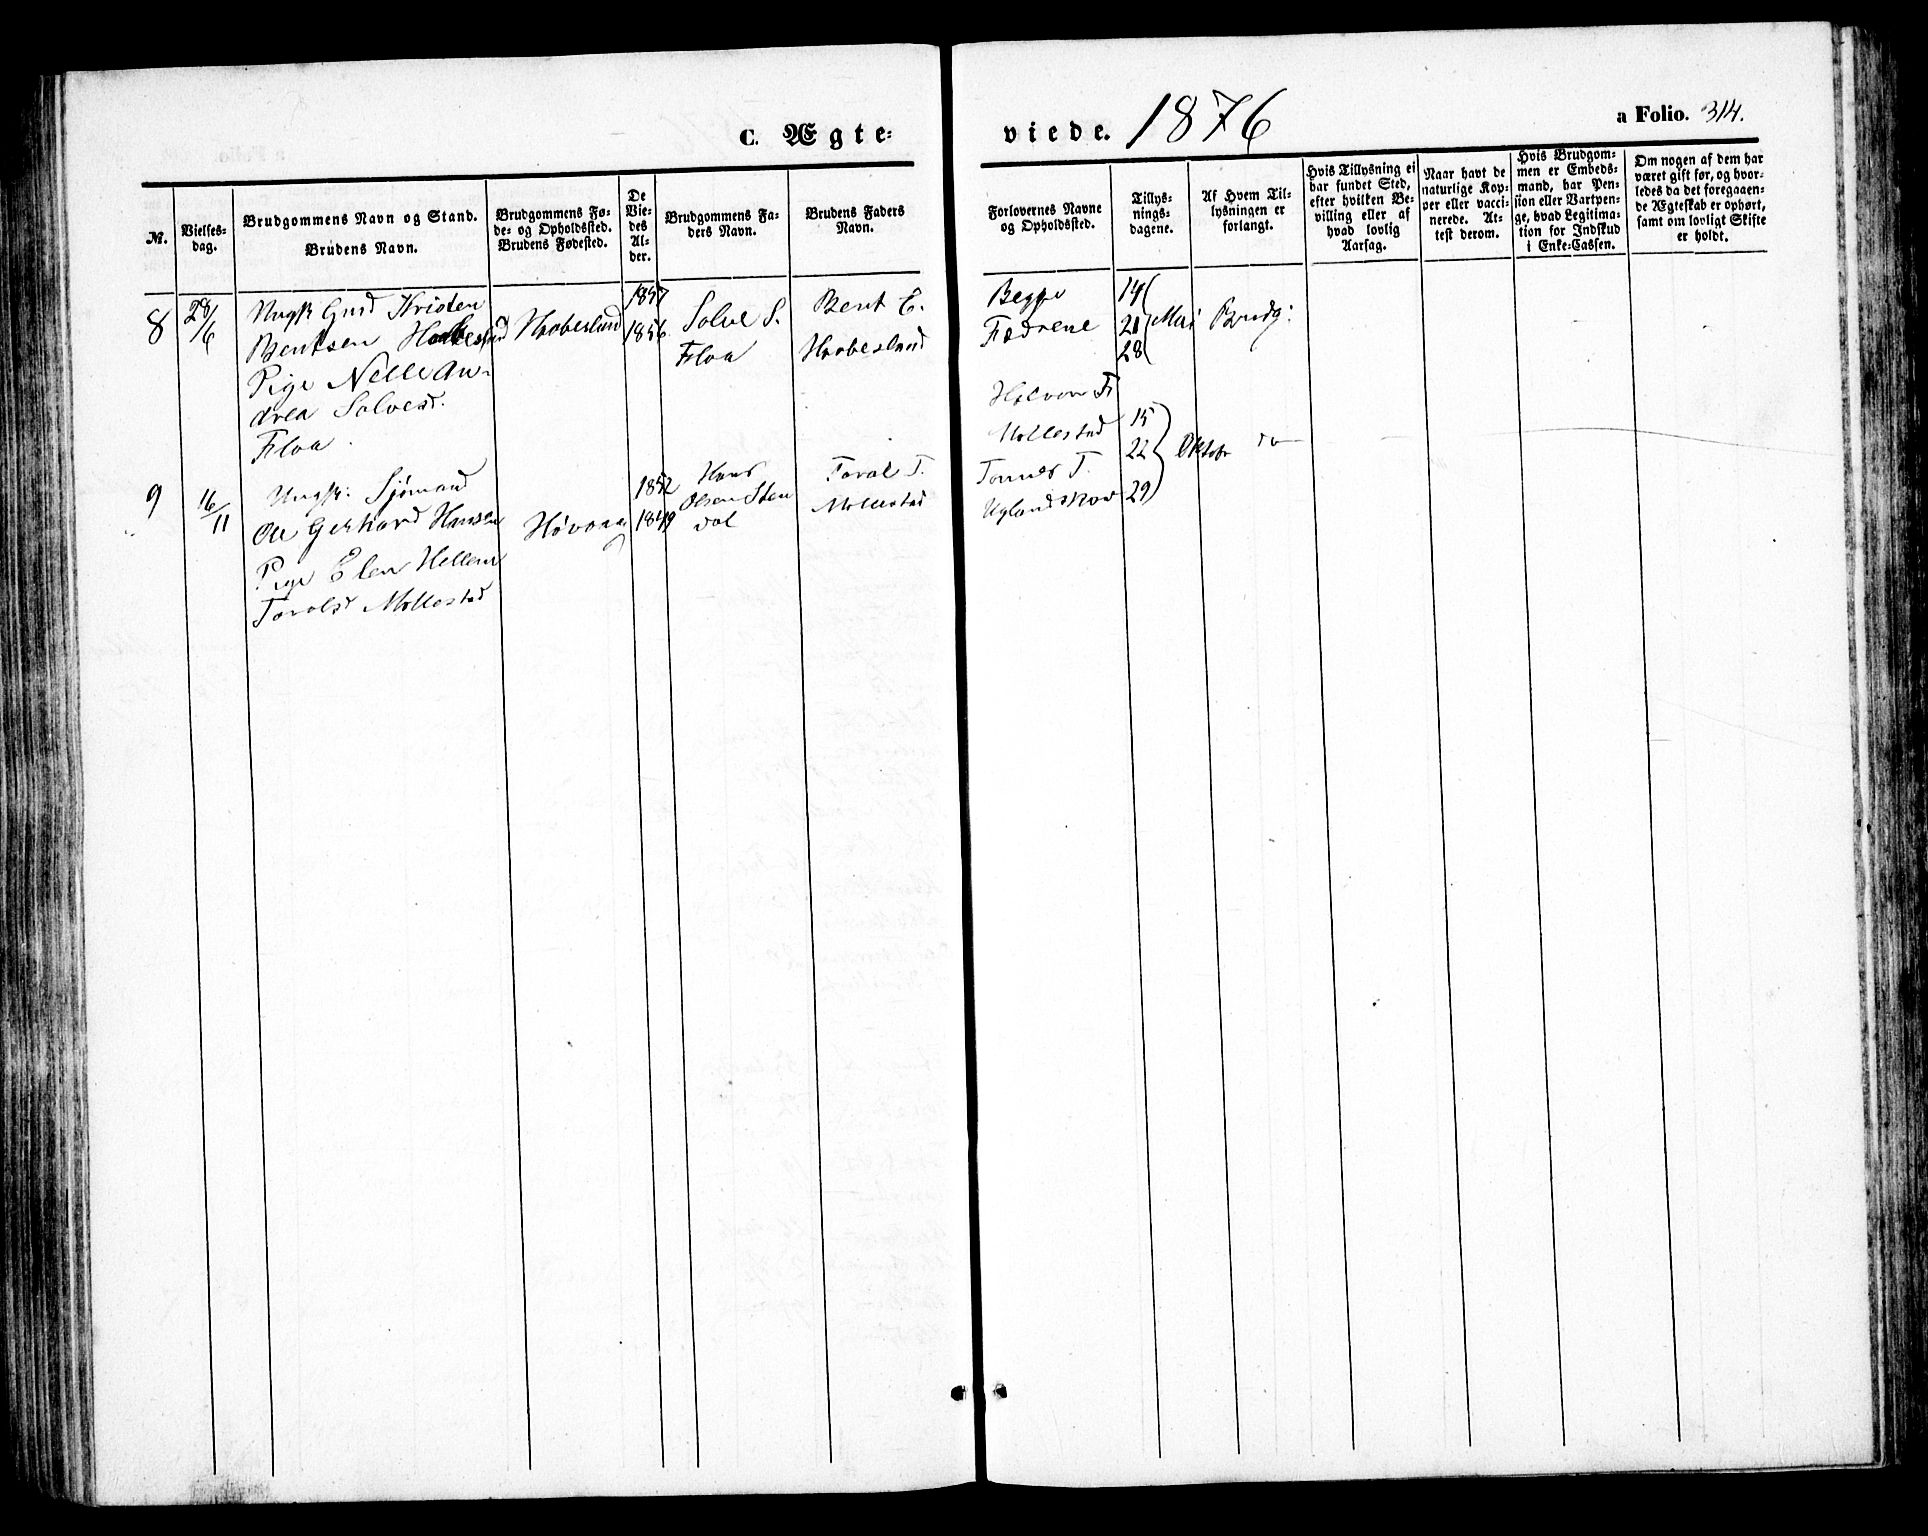 C. Ægte-
viede. 1876
a Folio. 314.
№.
Vielses-
dag.
Brudgommens Navn og Stand.
Brudens Navn.
Brudgommens Fø-
de- og Opholdssted.
Brudens Fødested.
De
Vie-
des
Al-
der.
Brudgommens Fa-
ders Navn.
Brudens Faders
Navn.
Forlovernes Navne
og Opholdssted.
Tillys-
nings-
dagene.
Af Hvem Til-
lysningen er
forlangt.
Hvis Tillysning ei
har fundet Sted,
efter hvilken Be-
villing eller af
hvad lovlig
Aarsag.
Naar havt de
naturlige Kop-
per eller vacci-
nerede. At-
test derom.
Hvis Brudgom-
men er Embeds-
mand, har Pen-
sion eller Vartpen-
ge, hvad Legitima-
tion for Indskud
i Enke-Cassen.
Om nogen af dem har
været gift før, og hvor-
ledes da det foregaaen-
de Ægteskab er ophørt,
samt om lovligt Skifte
er holdt.
8
28/6
Ungk Gmd Kristen
Bentsen Haabesland
Pige Nelle An-
drea Solvesd.
Floa
Haabesland
1857
1856
Solve S.
Floa
Bent E.
Haabesland
Begge
Fædrene
14
21
28
Mai
Brudg:
9
16/11
Ungk: Sjømand
Ole Gerhard Hansen
Pige Elen Hellene
Toralsd Mollestad
Høvaag
1852
1849
Hans
Olsen Sten
dal
Toral T.
Mollestad
Halvor F.
Mollestad
Tomes T.
Uglandskov
15
22
29
Oktobr
do